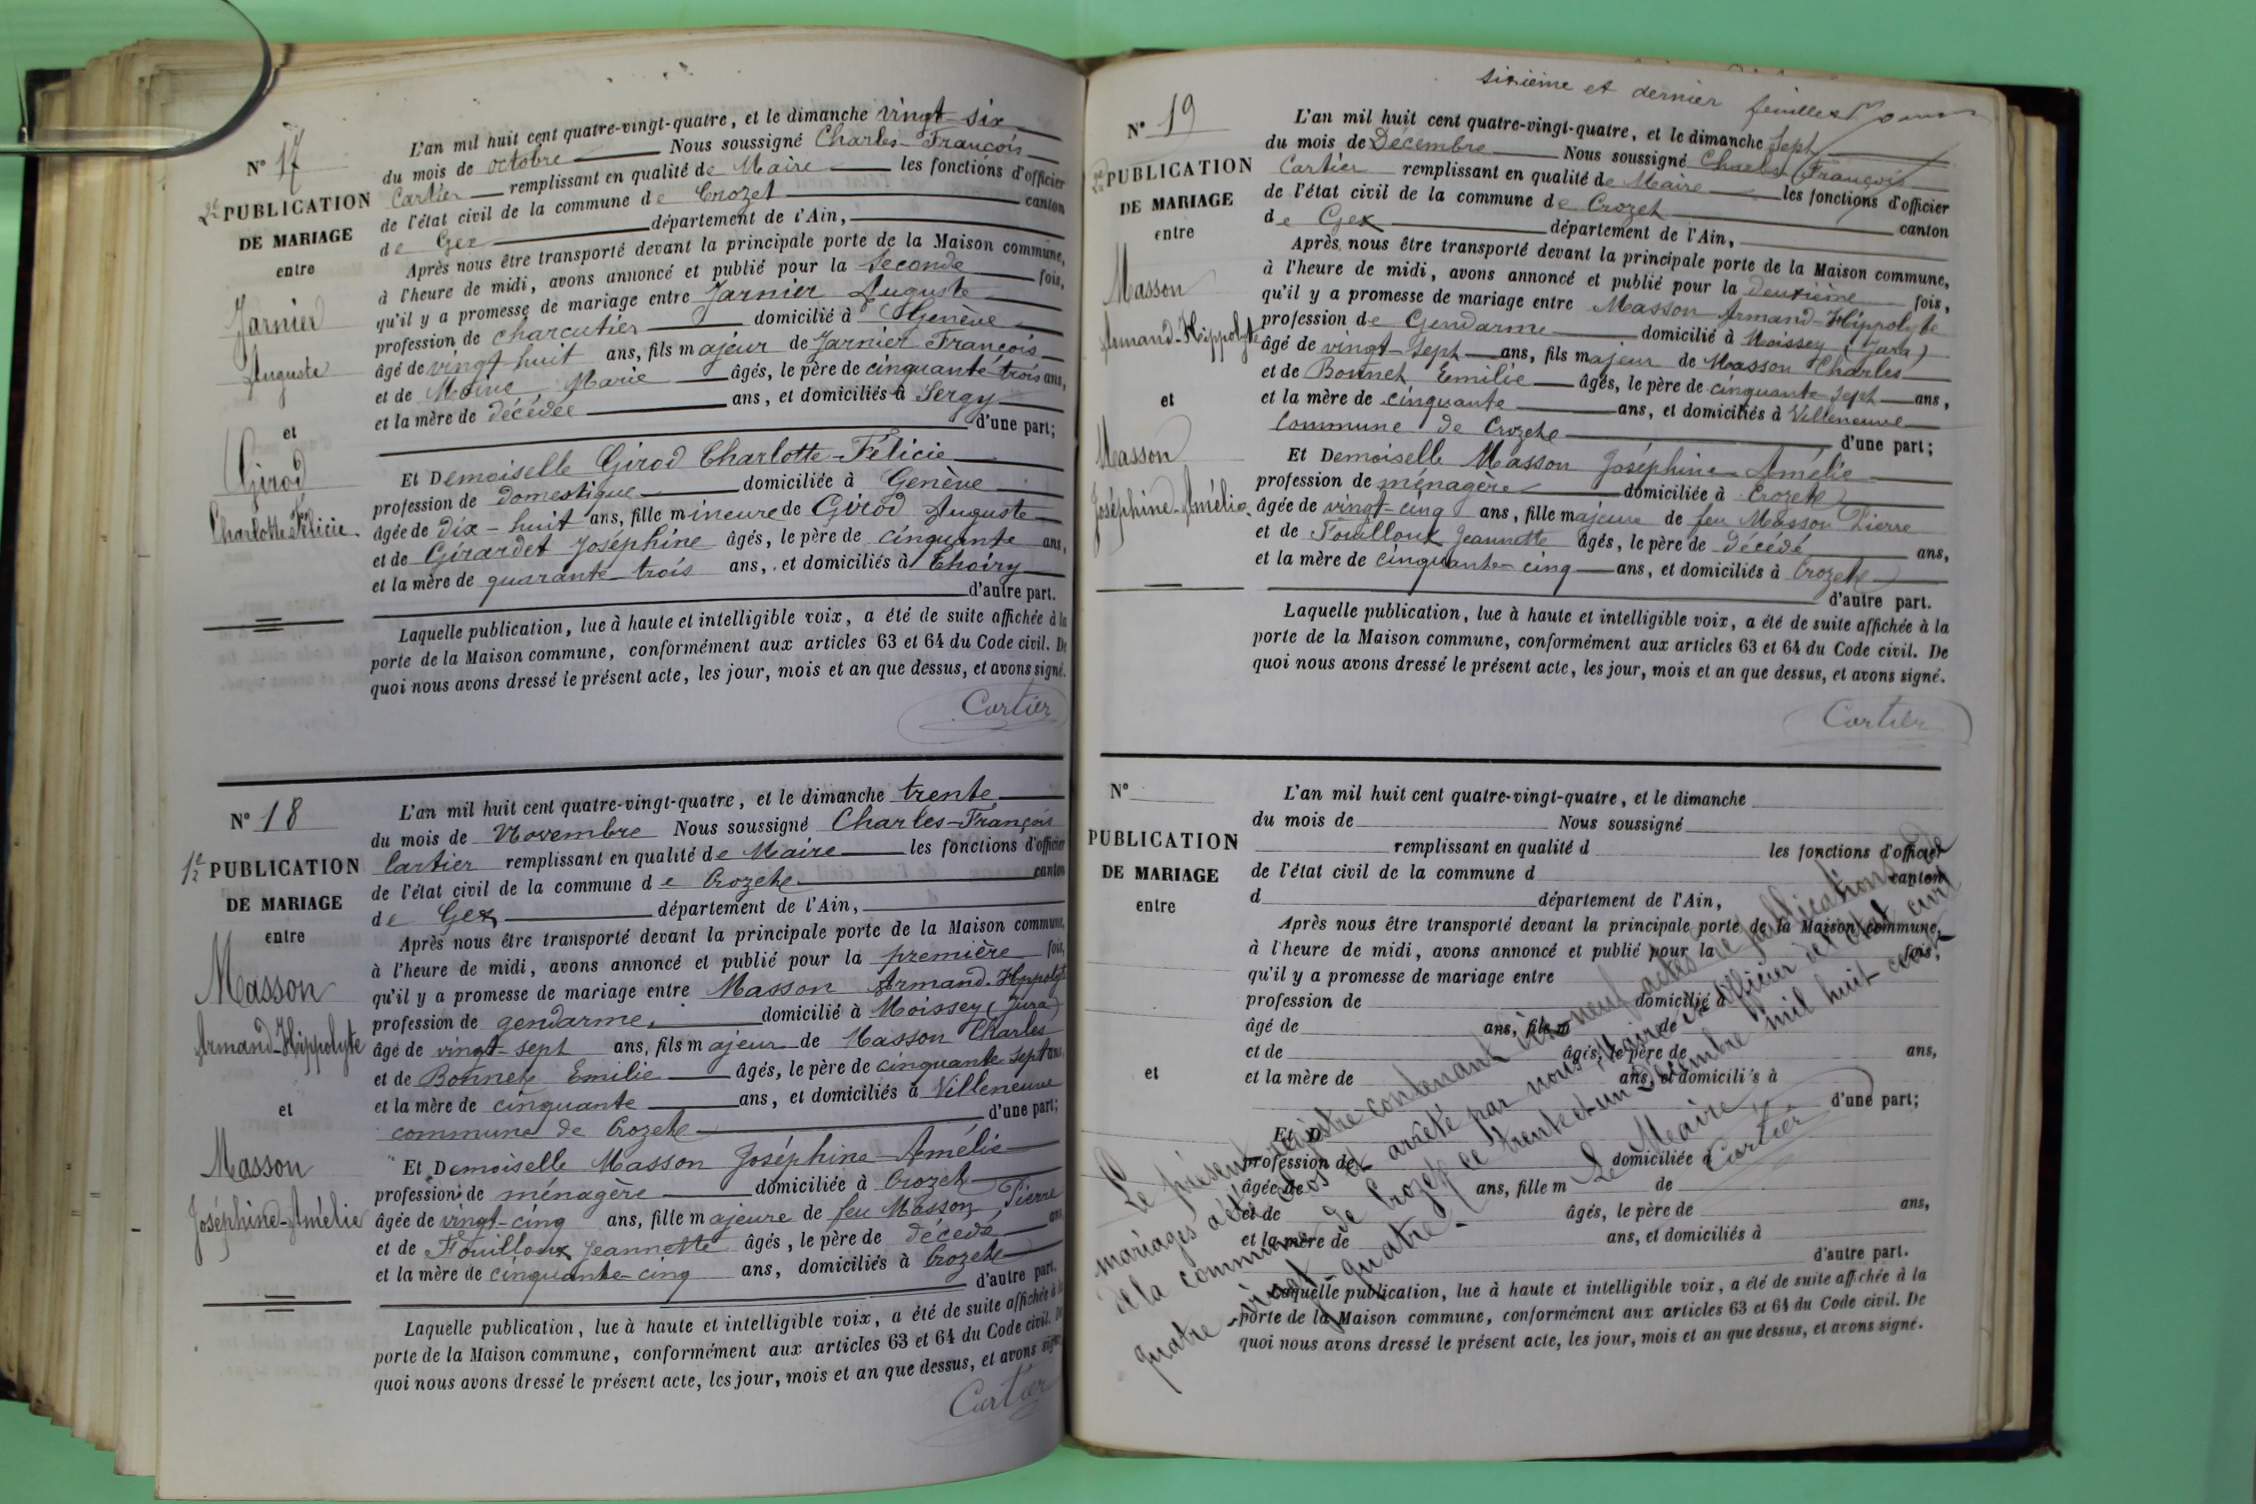 N° 17
2e PUBLICATION
DE MARIAGE
entre
Jarnier
Auguste
et
Girod
Charlotte Félicie.
L'an mil huit cent quatre-vingt-quatre, et le dimanche vingt six
du mois de octobre Nous soussigné Charles-François
Cartier remplissant en qualité de Maire les fonctions d'officier
de l'état civil de la commune de Crozet canton
de Gex département de l'Ain,
Après nous être transporté devant la principale porte de la Maison commune,
à l'heure de midi, avons annoncé et publié pour la seconde fois,
qu'il y a promesse de mariage entre Jarnier Auguste
profession de charcutier domicilié à Genève
âgé de vingt huit ans, fils majeur de Jarnier François
et de Marie âgés, le père de cinquante trois ans,
et la mère de décédée ans, et domiciliés à Sergy
d'une part;
Et Demoiselle Girod Charlotte-Félicie
profession de domestique domiciliée à Genève
âgée de dix-huit ans, fille mineure de Girod Auguste
et de Girardet Joséphine âgés, le père de cinquante ans,
et la mère de quarante-trois ans, et domiciliés à Thoiry
d'autre part.
Laquelle publication, lue à haute et intelligible voix, a été de suite affichée à la
porte de la Maison commune, conformément aux articles 63 et 64 du Code civil. De
quoi nous avons dressé le présent acte, les jour, mois et an que dessus, et avons signé.
Cartier
N° 18
1e PUBLICATION
DE MARIAGE
entre
Masson
Armand-Hippolyte
et
Masson
Joséphine-Amélie
L'an mil huit cent quatre-vingt-quatre, et le dimanche trente
du mois de Novembre Nous soussigné Charles-François
Cartier remplissant en qualité de Maire les fonctions d'officier
de l'état civil de la commune de Crozet canton
de Gex département de l'Ain,
Après nous être transporté devant la principale porte de la Maison commune,
à l'heure de midi, avons annoncé et publié pour la première fois,
qu'il y a promesse de mariage entre Masson Armand-Hippolyte
profession de gendarme, domicilié à Moissey (Jura)
âgé de vingt-sept ans, fils majeur de Masson Charles
et de Bonnet Emilie âgés, le père de cinquante sept ans,
et la mère de cinquante ans, et domiciliés à Villeneuve
commune de Crozet d'une part;
Et Demoiselle Masson Joséphine-Amélie
profession de ménagère domiciliée à Crozet
âgée de vingt-cinq ans, fille majeure de feu Masson Pierre
et de Fouilloux Jeannette âgés, le père de décédé ans
et la mère de cinquante-cinq ans, domiciliés à Crozet
d'autre part.
Laquelle publication, lue à haute et intelligible voix, a été de suite affichée à la
porte de la Maison commune, conformément aux articles 63 et 64 du Code civil. De
quoi nous avons dressé le présent acte, les jour, mois et an que dessus, et avons signé
Cartier
sixième et dernier feuillet
N° 19
2e PUBLICATION
DE MARIAGE
entre
Masson
Armand-Hippolyte
et
Masson
Joséphine-Amélie.
L'an mil huit cent quatre-vingt-quatre, et le dimanche Sept
du mois de Décembre Nous soussigné Charles François
Cartier remplissant en qualité de Maire les fonctions d'officier
de l'état civil de la commune de Crozet canton
de Gex département de l'Ain,
Après nous être transporté devant la principale porte de la Maison commune,
à l'heure de midi, avons annoncé et publié pour la deuxième fois,
qu'il y a promesse de mariage entre Masson Armand-Hippolyte
profession de Gendarme domicilié à Moissey (Jura)
âgé de vingt-sept ans, fils majeur de Masson Charles
et de Bonnet Emilie âgés, le père de cinquante sept ans,
et la mère de cinquante ans, et domiciliés à Villeneuve
commune de Crozet d'une part;
Et Demoiselle Masson Joséphine-Amélie
profession de ménagère domiciliée à Crozet
âgée de vingt-cinq ans, fille majeure de feu Masson Pierre
et de Fouilloux Jeannette âgés, le père de décédé ans,
et la mère de cinquante-cinq ans, et domiciliés à Crozet
d'autre part.
Laquelle publication, lue à haute et intelligible voix, a été de suite affichée à la
porte de la Maison commune, conformément aux articles 63 et 64 du Code civil. De
quoi nous avons dressé le présent acte, les jour, mois et an que dessus, et avons signé.
Cartier
N°
PUBLICATION
DE MARIAGE
entre
et
L'an mil huit cent quatre-vingt-quatre, et le dimanche
du mois de Nous soussigné
remplissant en qualité d les fonctions d'officier
de l'état civil de la commune d canton
d département de l'Ain,
Après nous être transporté devant la principale porte de la Maison commune,
à l'heure de midi, avons annoncé et publié pour la fois,
qu'il y a promesse de mariage entre
profession de domicilié à
âgé de ans, fils m de
et de âgés, le père de ans,
et la mère de ans, et domiciliés à
d'une part;
Et D
profession de domiciliée à
âgée de ans, fille m de
et de âgés, le père de ans,
et la mère de ans, et domiciliés à
d'autre part.
Laquelle publication, lue à haute et intelligible voix, a été de suite affichée à la
porte de la Maison commune, conformément aux articles 63 et 64 du Code civil. De
quoi nous avons dressé le présent acte, les jour, mois et an que dessus, et avons signé.
Le présent registre contenant dix-neuf actes de publications de
mariages a été clos et arrêté par nous, Maire et officier de l'état civil
de la commune de Crozet ce trente et un Décembre mil huit cent
quatre-vingt-quatre
Le Maire,
Cartier